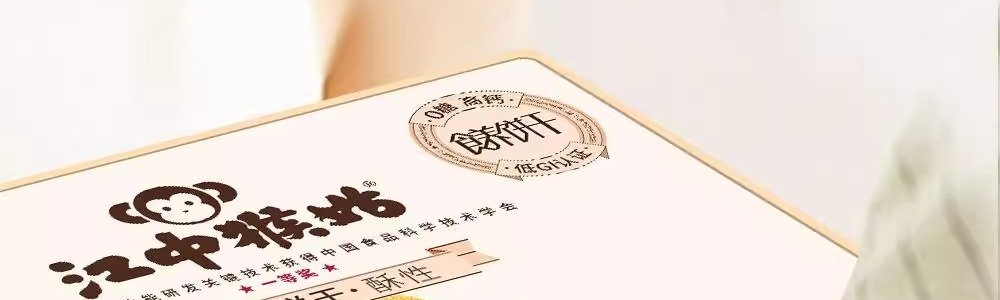 0糖 高钙
饼干
·低GI认证·
江中猴姑®
能研发关键技术获得中国食品科学技术学会
★一等奖★
饼干·酥性